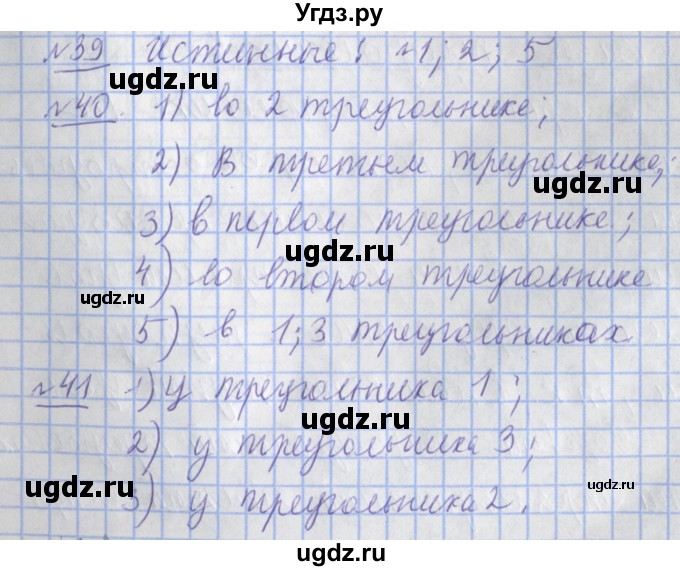 Угдз.ру
№39 Истинные: №1; 2; 5
№40. 1) во 2 треугольнике;
2) В третьем треугольнике;
3) в первом треугольнике;
4) во втором треугольнике
5) в 1; 3 треугольниках
№41 1) у треугольника 1;
2) у треугольника 3;
3) у треугольника 2.
ugdz.ru
ugdz.ru
ugdz.ru
ugdz.ru
ugdz.ru
ugdz.ru
ugdz.ru
ugdz.ru
ugdz.ru
ugdz.ru
ugdz.ru
ugdz.ru